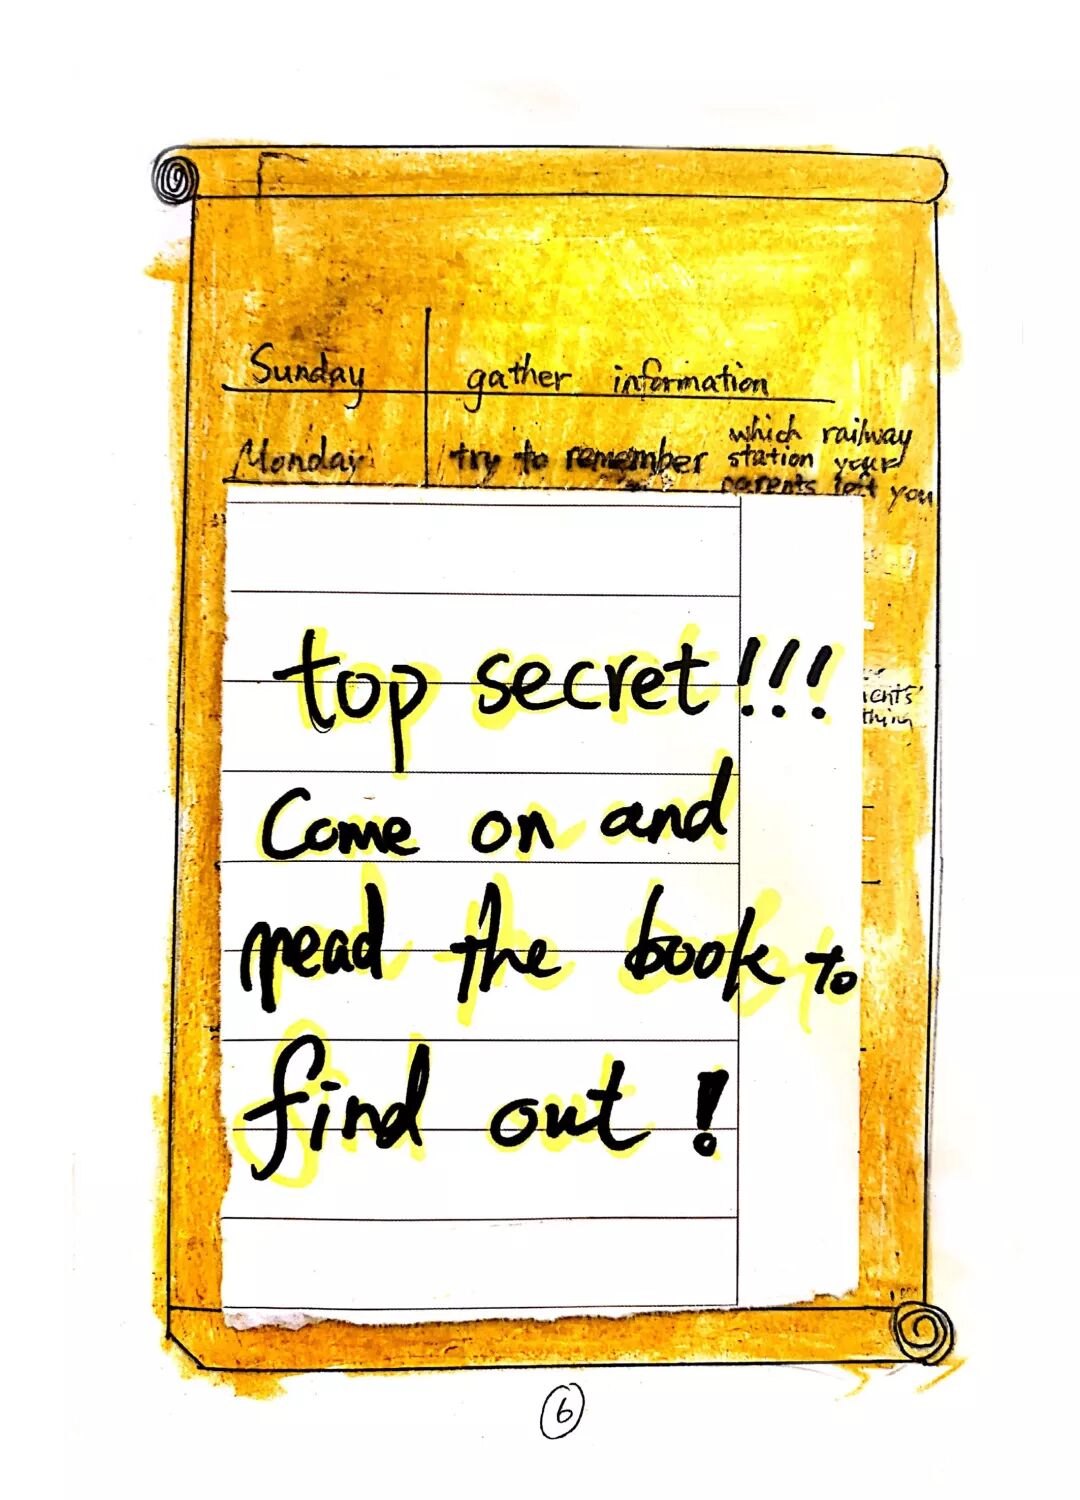 Sunday gather information
Monday try to remember which railway
station your
parents left you
top secret!!!
Come on and
read the book to
find out!
thin
6